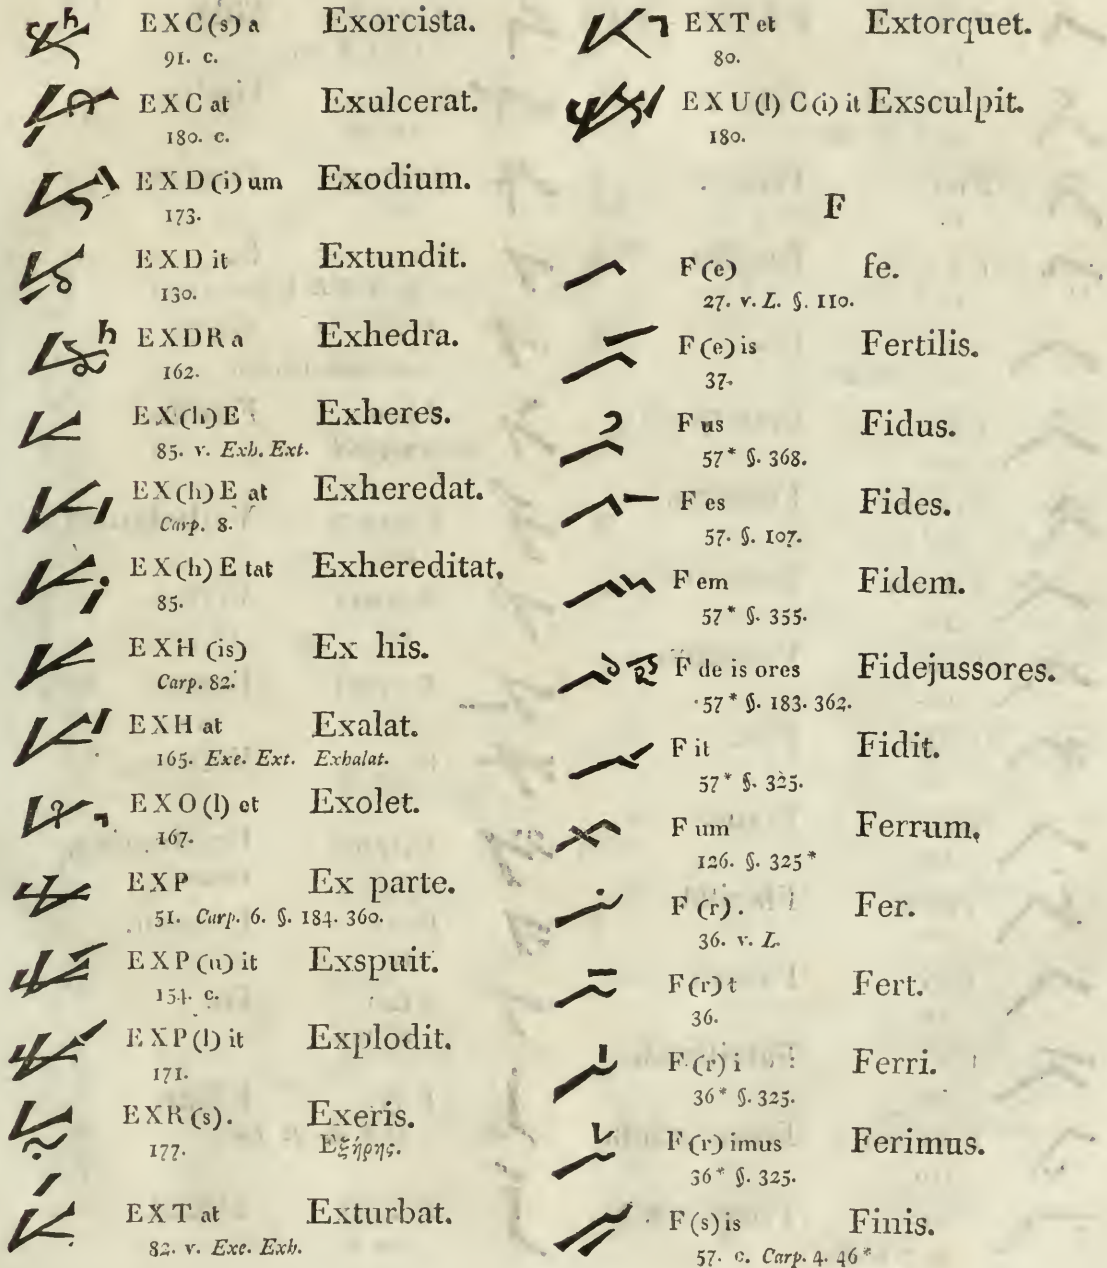 EXC(s) a Exorcista.
91. c.
EXC at Exulcerat.
180. c.
EXD(i) um Exodium.
173.
EXD it Extundit.
130.
EXDR a Exhedra.
162.
EX(h)E Exheres.
85. v. Exh. Ext.
EX(h)E at Exheredat.
Carp. 8.
EX(h)E tat Exhereditat.
85.
EXH (is) Ex his.
Carp. 82.
EXH at Exalat.
165. Exe. Ext. Exhalat.
EXO(l) et Exolet.
167.
EXP Ex parte.
51. Carp. 6. §. 184. 360.
EXP(u) it Exspuit.
154. c.
EXP(l) it Explodit.
171.
EXR(s). Exeris.
177. Εξήρης.
EXT at Exturbat.
82. v. Exe. Exh.
EXT et Extorquet.
80.
EXU(l) C(i) it Exsculpit.
180.
F
F(e) fe.
27. v. L. §. 110.
F(e) is Fertilis.
37.
F us Fidus.
57* §. 368.
F es Fides.
57. §. 107.
F em Fidem.
57* §. 355.
F de is ores Fidejussores.
57* §. 183. 362.
F it Fidit.
57* §. 325.
F um Ferrum.
126. §. 325*
F(r). Fer.
36. v. L.
F(r) t Fert.
36.
F(r) i Ferri.
36* §. 325.
F(r) imus Ferimus.
36* §. 325.
F(s) is Finis.
57. c. Carp. 4. 46*